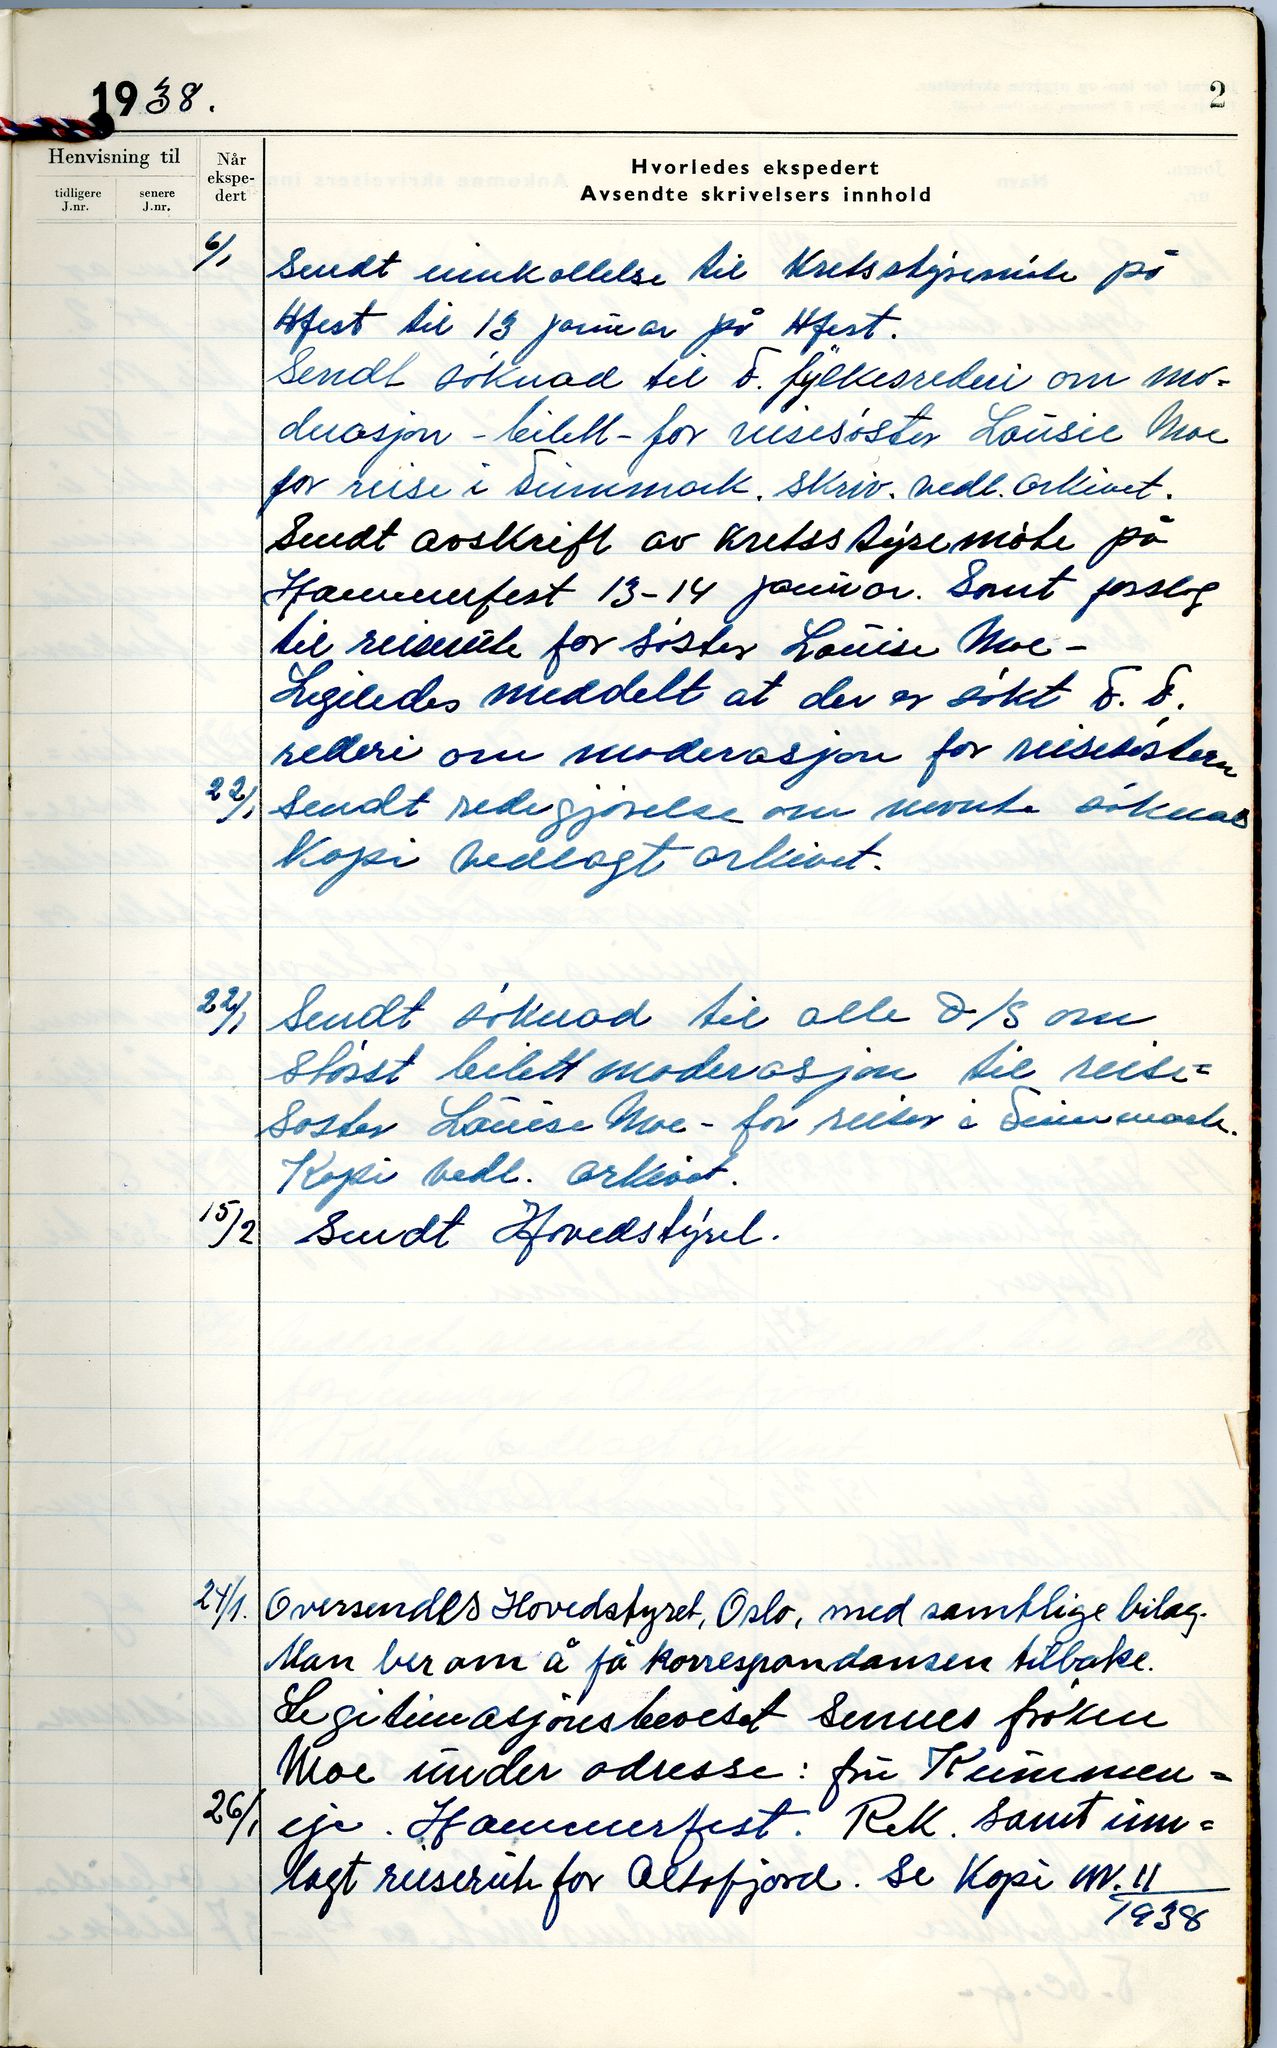 1938.
2
Henvisning til
tidligere J.nr.
senere J.nr.
Når ekspe-dert
Hvorledes ekspedert
Avsendte skrivelsers innhold
6/1 Sendt innkallelse til Kretsstyremöte på
Hfest til 13 januar på Hfest.
Sendt söknad til F. fylkesrederi om mo-
derasjon - bilett - for reisesöster Louise Moe
for reise i Finnmark. Skriv. vedl. arkivet.
Sendt avskrift av Kretsstyremöte på
Hammerfest 13-14 januar. Samt forslag
til reiserute for söster Louise Moe -
Ligeledes meddelt at der er sökt F. F.
rederi om moderasjon for reisesöstern
22/1 Sendt redegjörelse om nevnte söknad
Kopi vedlagt arkivet.
22/1 Sendt söknad til alle D/S om
störst bilettmoderasjon til reise=
söster Louise Moe - for reiser i Finnmark.
Kopi vedl. arkivet.
15/2 Sendt Hovedstyret.
24/1. Oversendes Hovedstyret, Oslo, med samtlige bilag.
Man ber om å få korrespondansen tilbake.
Legitimasjonsbeviset sennes fröken
Moe under adresse: fru Kummen=
26/1 eje. Hammerfest. Rek. samt inn=
lagt reiserute for Altafjord. Se Kopi nr. 11
1938